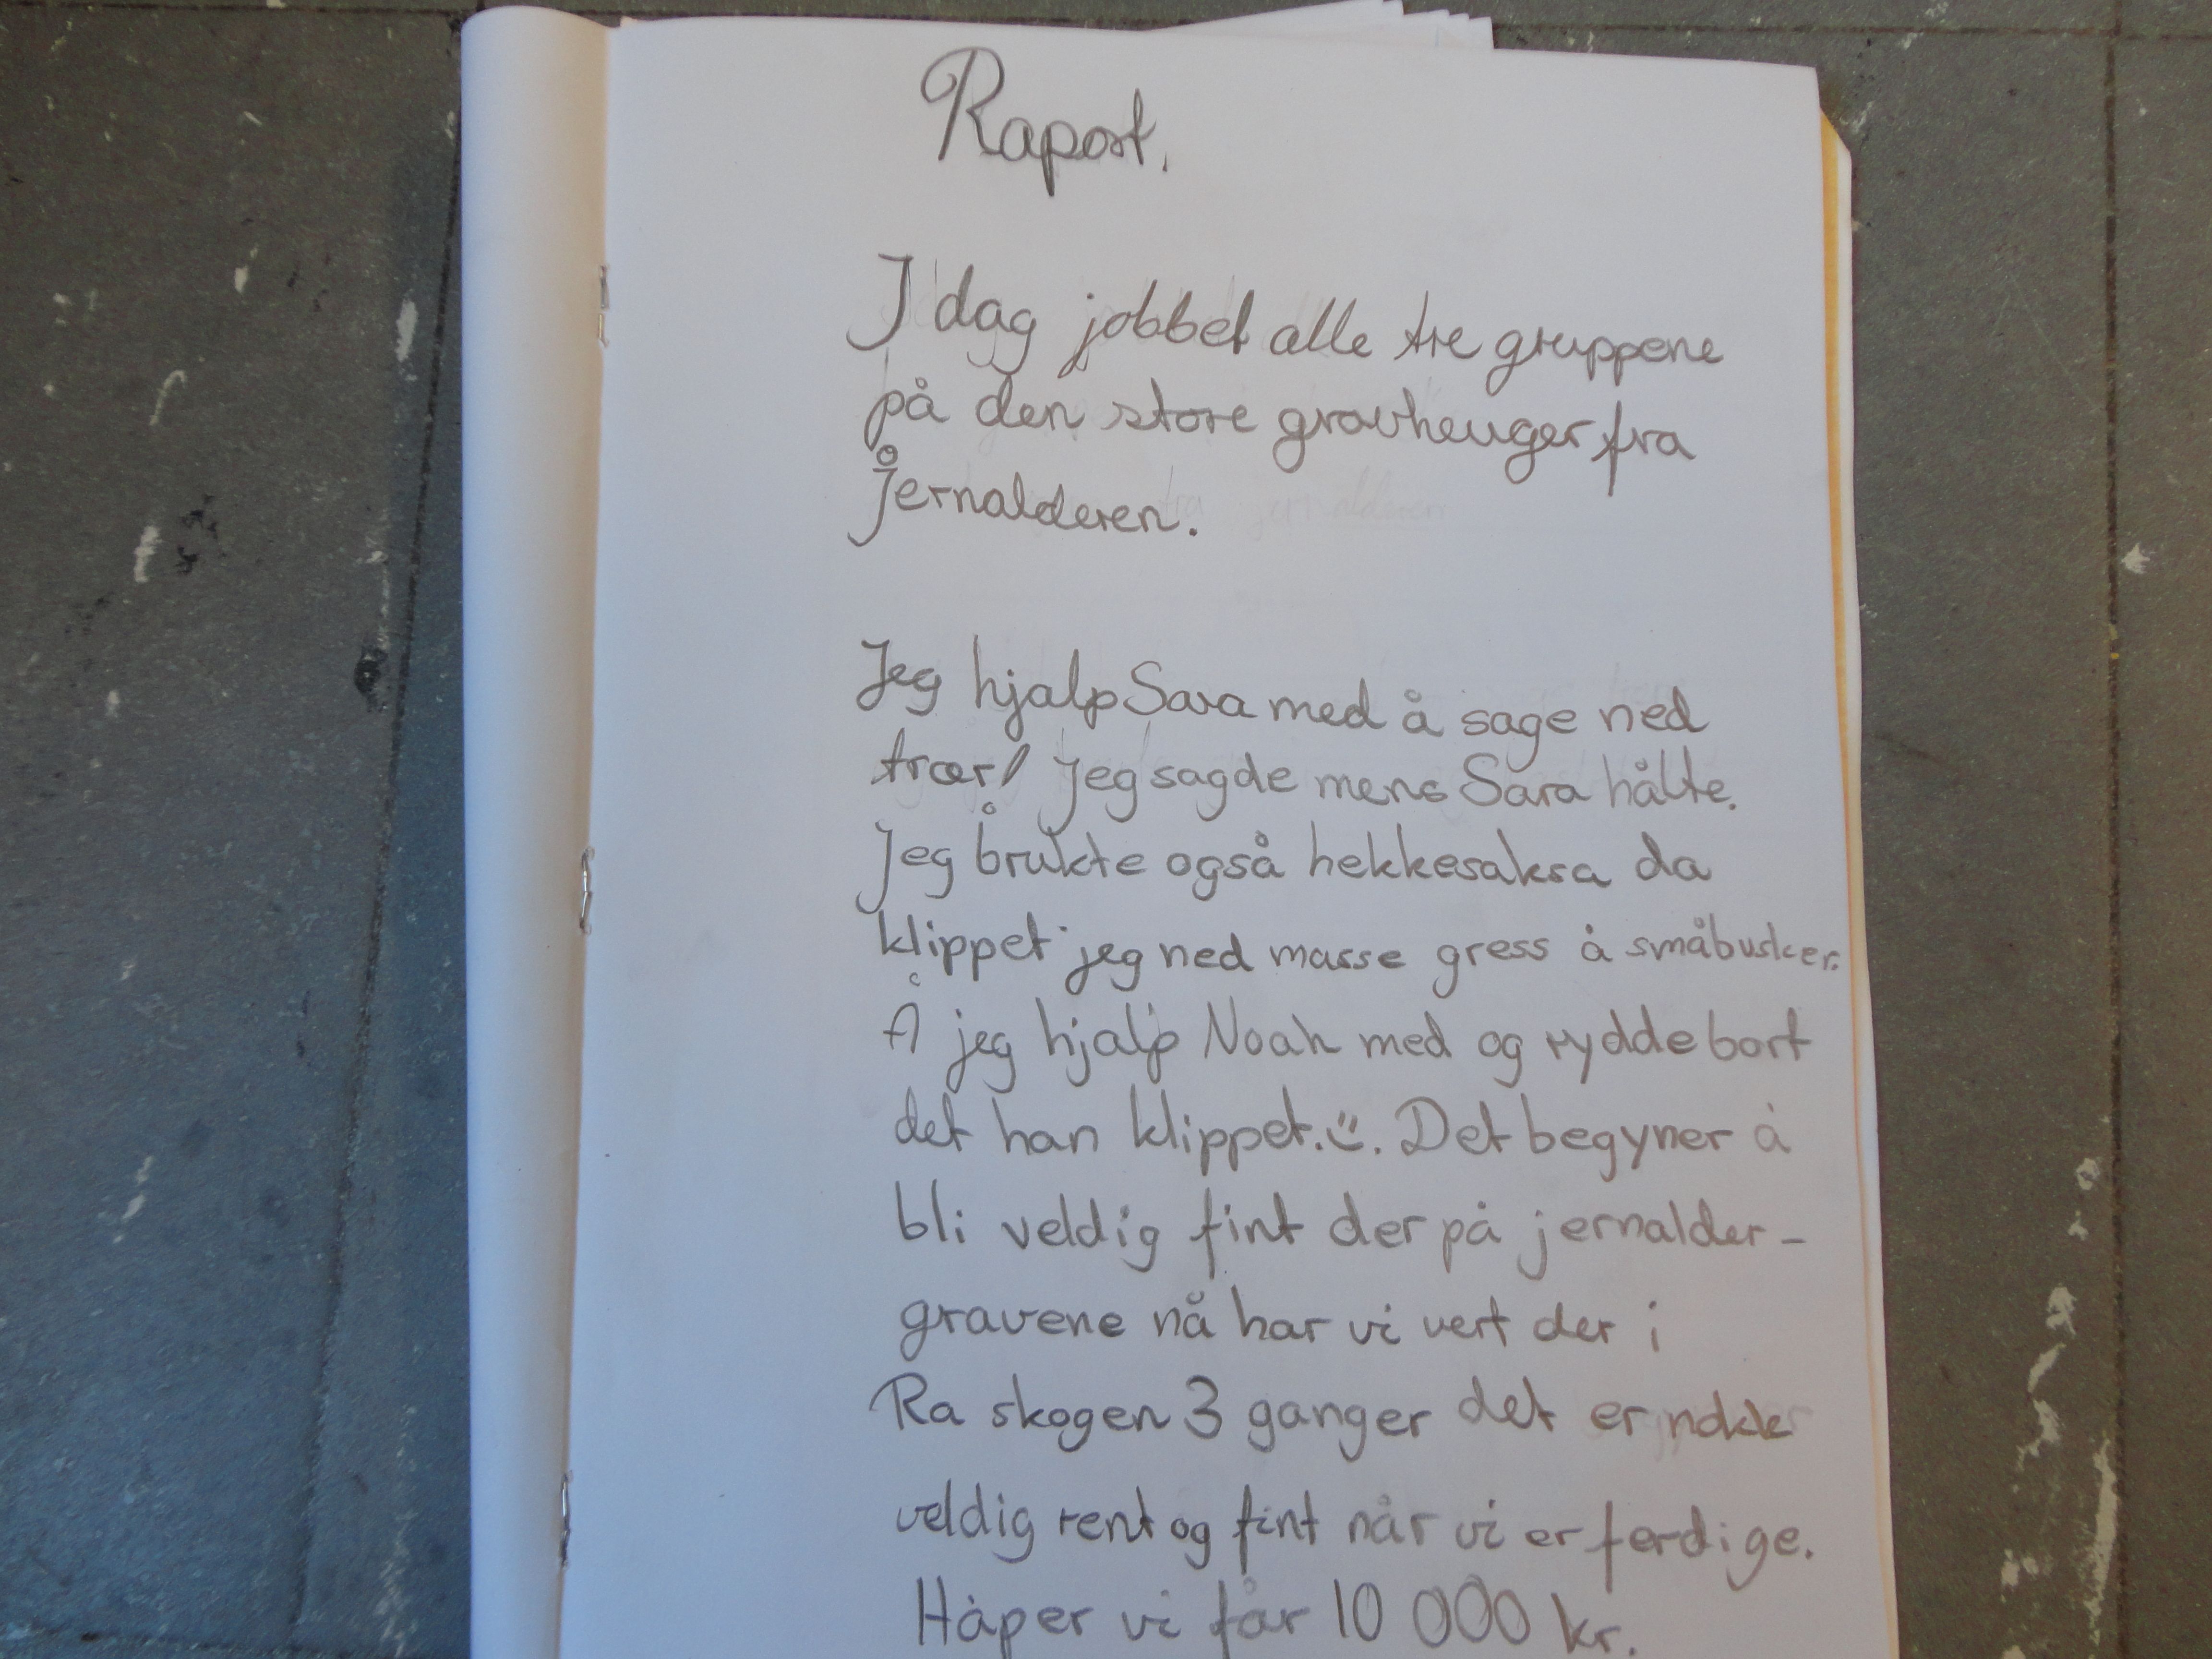 Raport.
I dag jobbet alle tre gruppene
på den store gravheuger fra
jernalderen.
Jeg hjalp Sara med å sage ned
trær! Jeg sagde mens Sara hålte.
Jeg brukte også hekkesaksa da
klippet jeg ned masse gress å småbusker.
Å jeg hjalp Noah med og rydde bort
det han klippet. Det begyner å
bli veldig fint der på jernalder-
gravene nå har vi vert der i
Ra skogen 3 ganger det er
veldig rent og fint når vi er ferdige.
Håper vi får 10 000 kr.